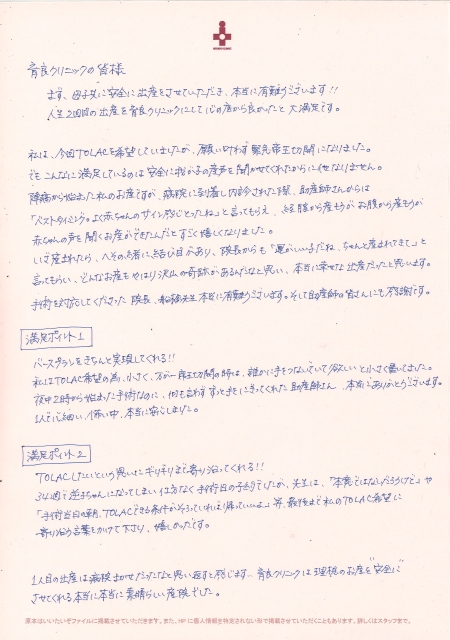 育良クリニックの皆様
まず、母子共に安全に出産をさせていただき、本当に有難うございます!!
人生2回目の出産を育良クリニックにして心の底から良かったと大満足です。
私は、今回TOLACを希望していましたが、願い叶わず緊急帝王切開になりました。
でもこんなに満足しているのは安全に我が子の産声を聞かせてくれたからに他なりません。
陣痛から始まった私のお産ですが、病院に到着し内診された際、助産師さんからは
「ベストタイミング。よく赤ちゃんのサイン感じとったね」と言ってもらえ、経膣から産もうがお腹から産もうが
赤ちゃんの声を聞くお産ができたんだとすごく嬉しくなりました。
いざ産まれたら、へその緒に結び目があり、院長からも「運がいい子だね、ちゃんと産まれてきて」と
言ってもらい、どんなお産もやはり沢山の奇跡があるんだなと思い、本当に幸せな出産だったと思います。
手術を対応してくださった院長、先生本当に有難うございます。そして助産師の皆さんにも感謝です。
満足ポイント1
バースプランをきちんと実現してくれる!!
私はTOLAC希望の為、小さく、万が一帝王切開の時は、誰かに手をつないでいて欲しいと小さく書いてました。
夜中2時から始まった手術なのに、何も言わずずっと手をにぎってくれた助産師さん、本当にありがとうございます。
1人で心細い、怖い中、本当に安心しました。
満足ポイント2
TOLACしたいという思いにギリギリまで寄り沿ってくれる!!
34週で逆子ちゃんになってしまい仕方なく手術日の予約でしたが、先生は、「本意ではないだろうけど」や
「手術当日の朝、TOLACできる条件がそろっていれば帰っていいよ」等、最後まで私のTOLAC希望に
寄り沿う言葉をかけて下さり、嬉しかったです。
1人目の出産は病院まかせだったなと思い返すと感じます。育良クリニックは理想のお産を"安全に"
させてくれる本当に本当に素晴らしい産院でした。
原本はいいたいぞファイルに掲載させていただきます。また、HPに個人情報を特定されない形で掲載させていただくこともあります。詳しくはスタッフまで。